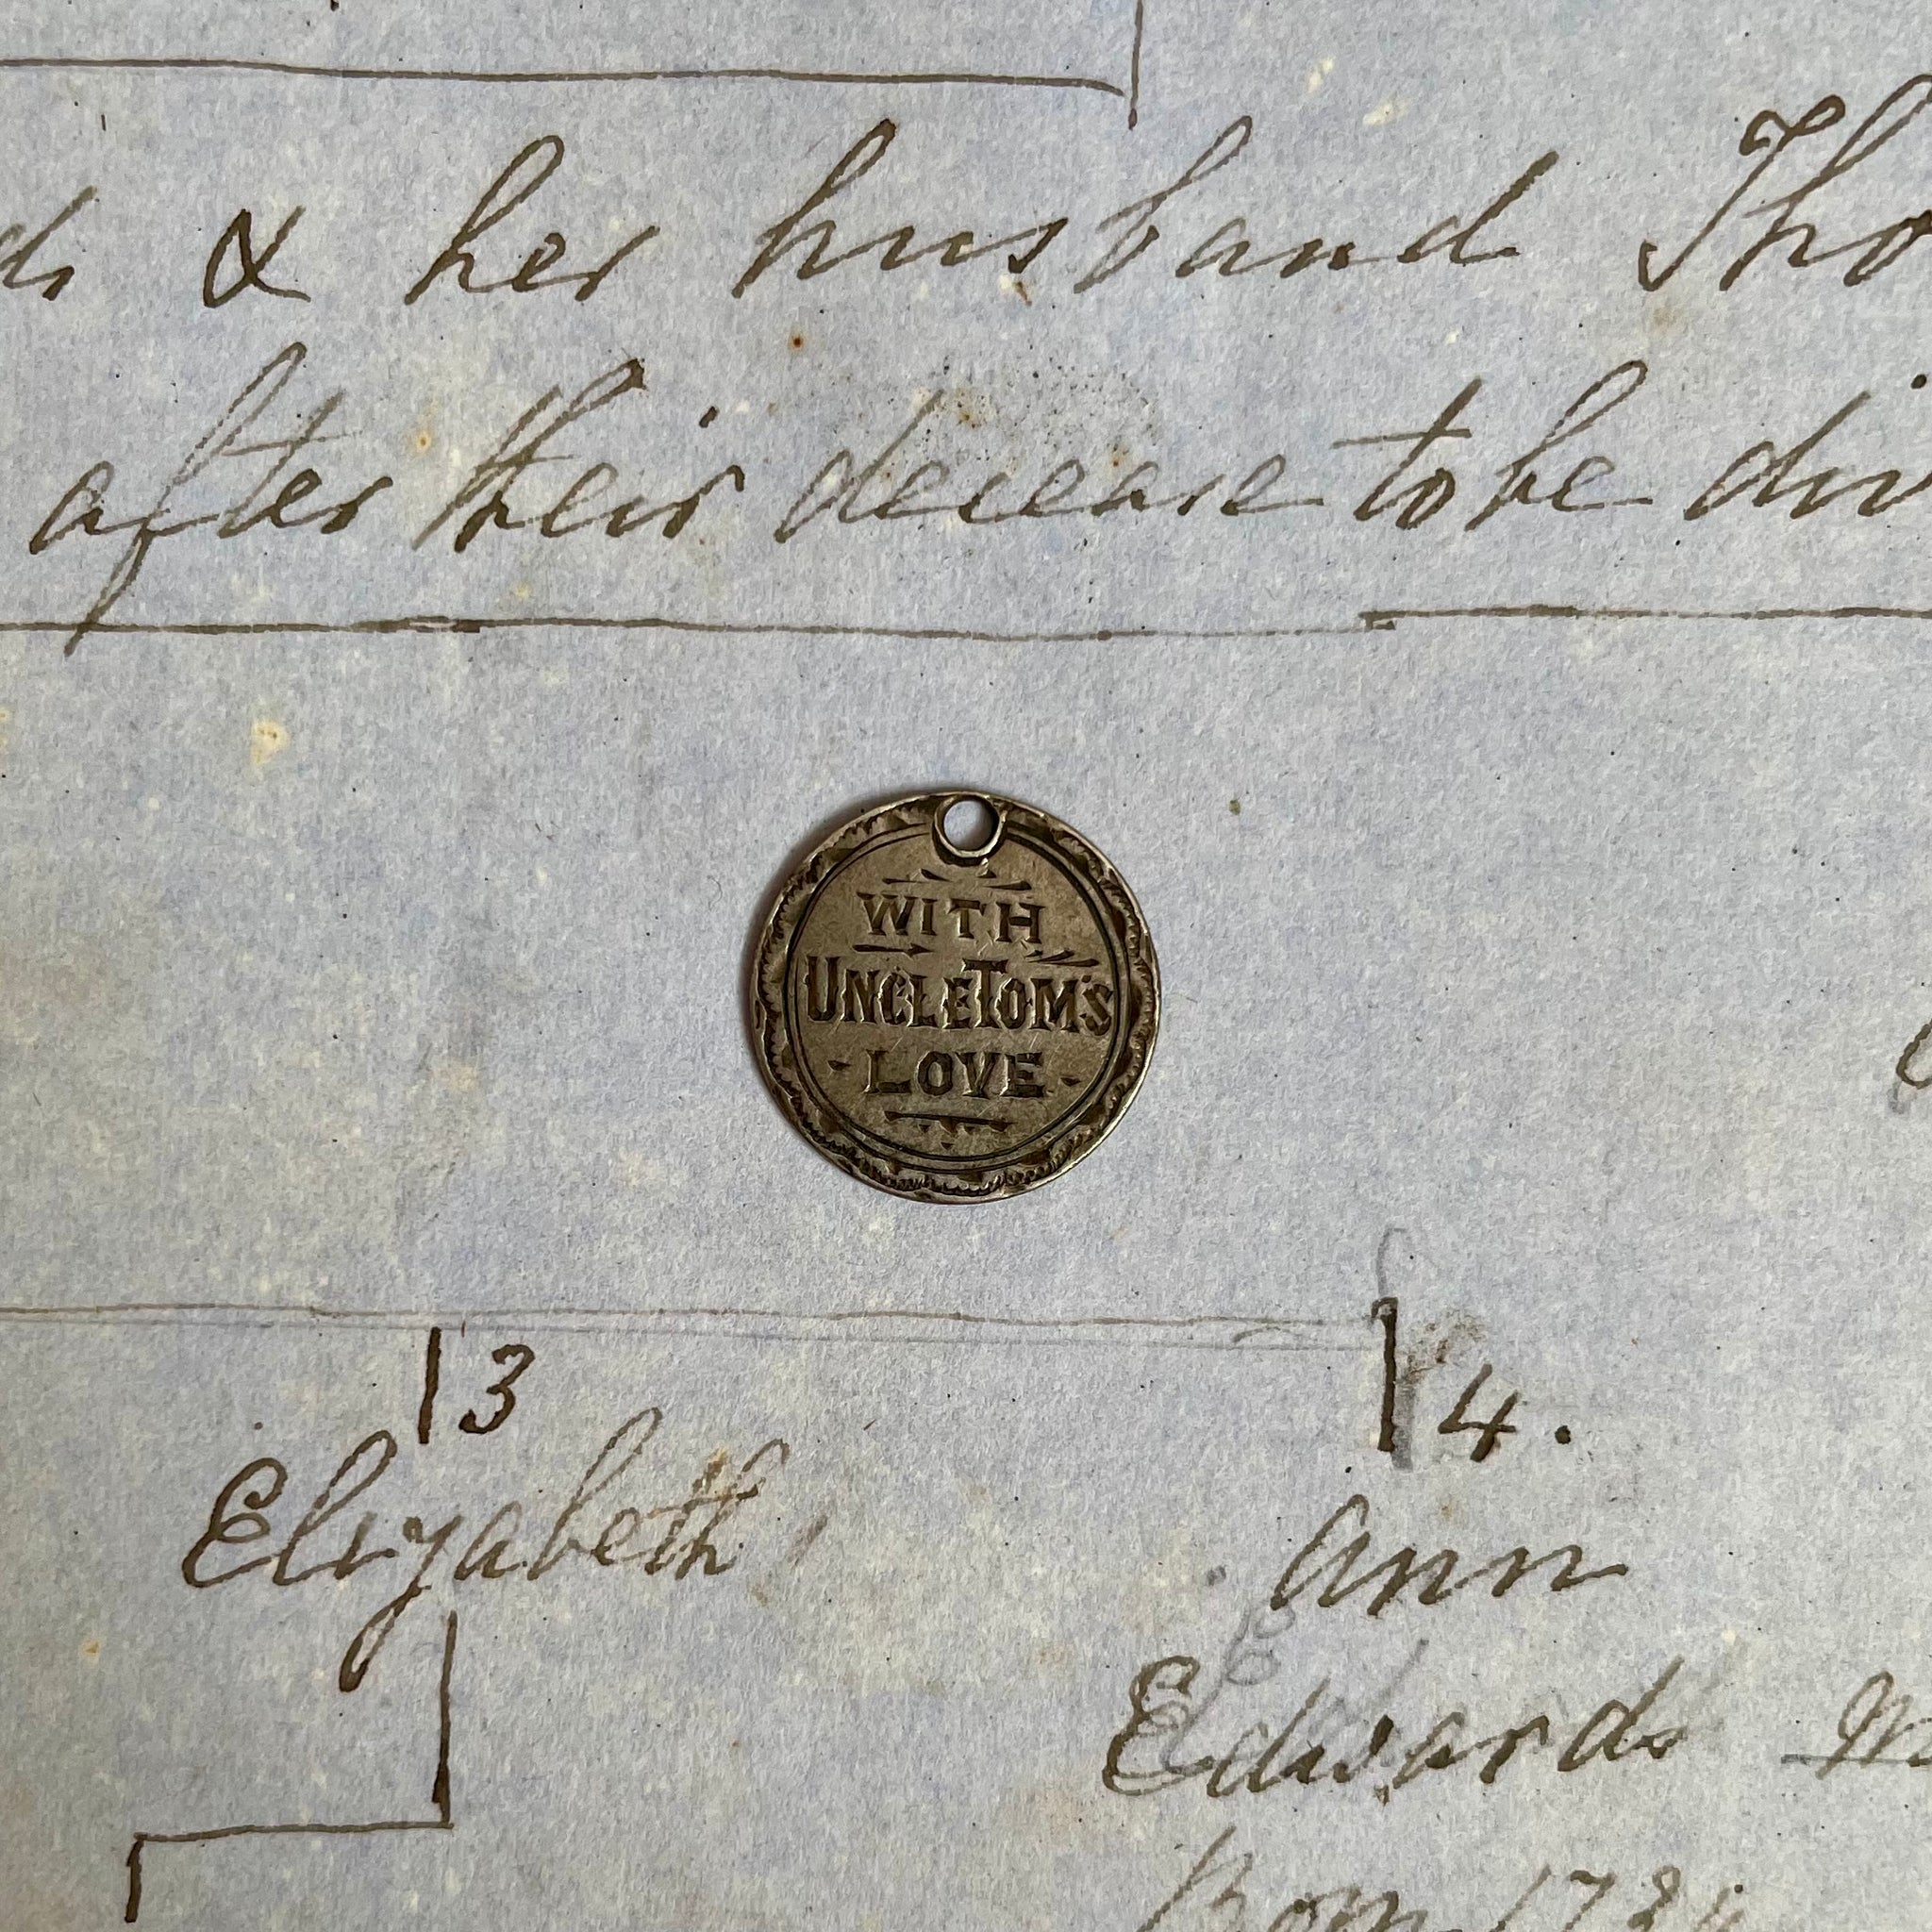 & her husband Tho
after their decease to be div
WITH
UNCLE TOM'S
LOVE
3
4.
Elizabeth
ann
Edwards
Born 178